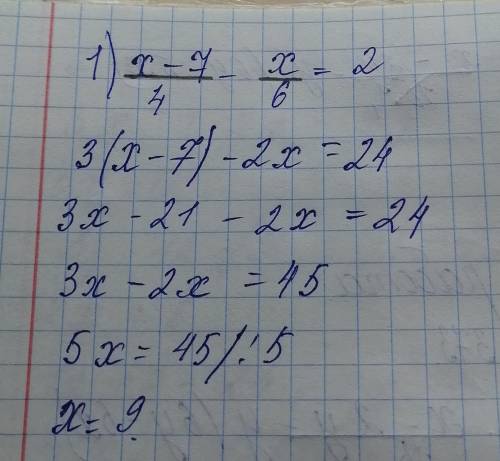 1) x-7/4 - x/6 = 2
3(x-7)-2x=24
3x-21-2x=24
3x-2x=45
5x=45/:5
x=9